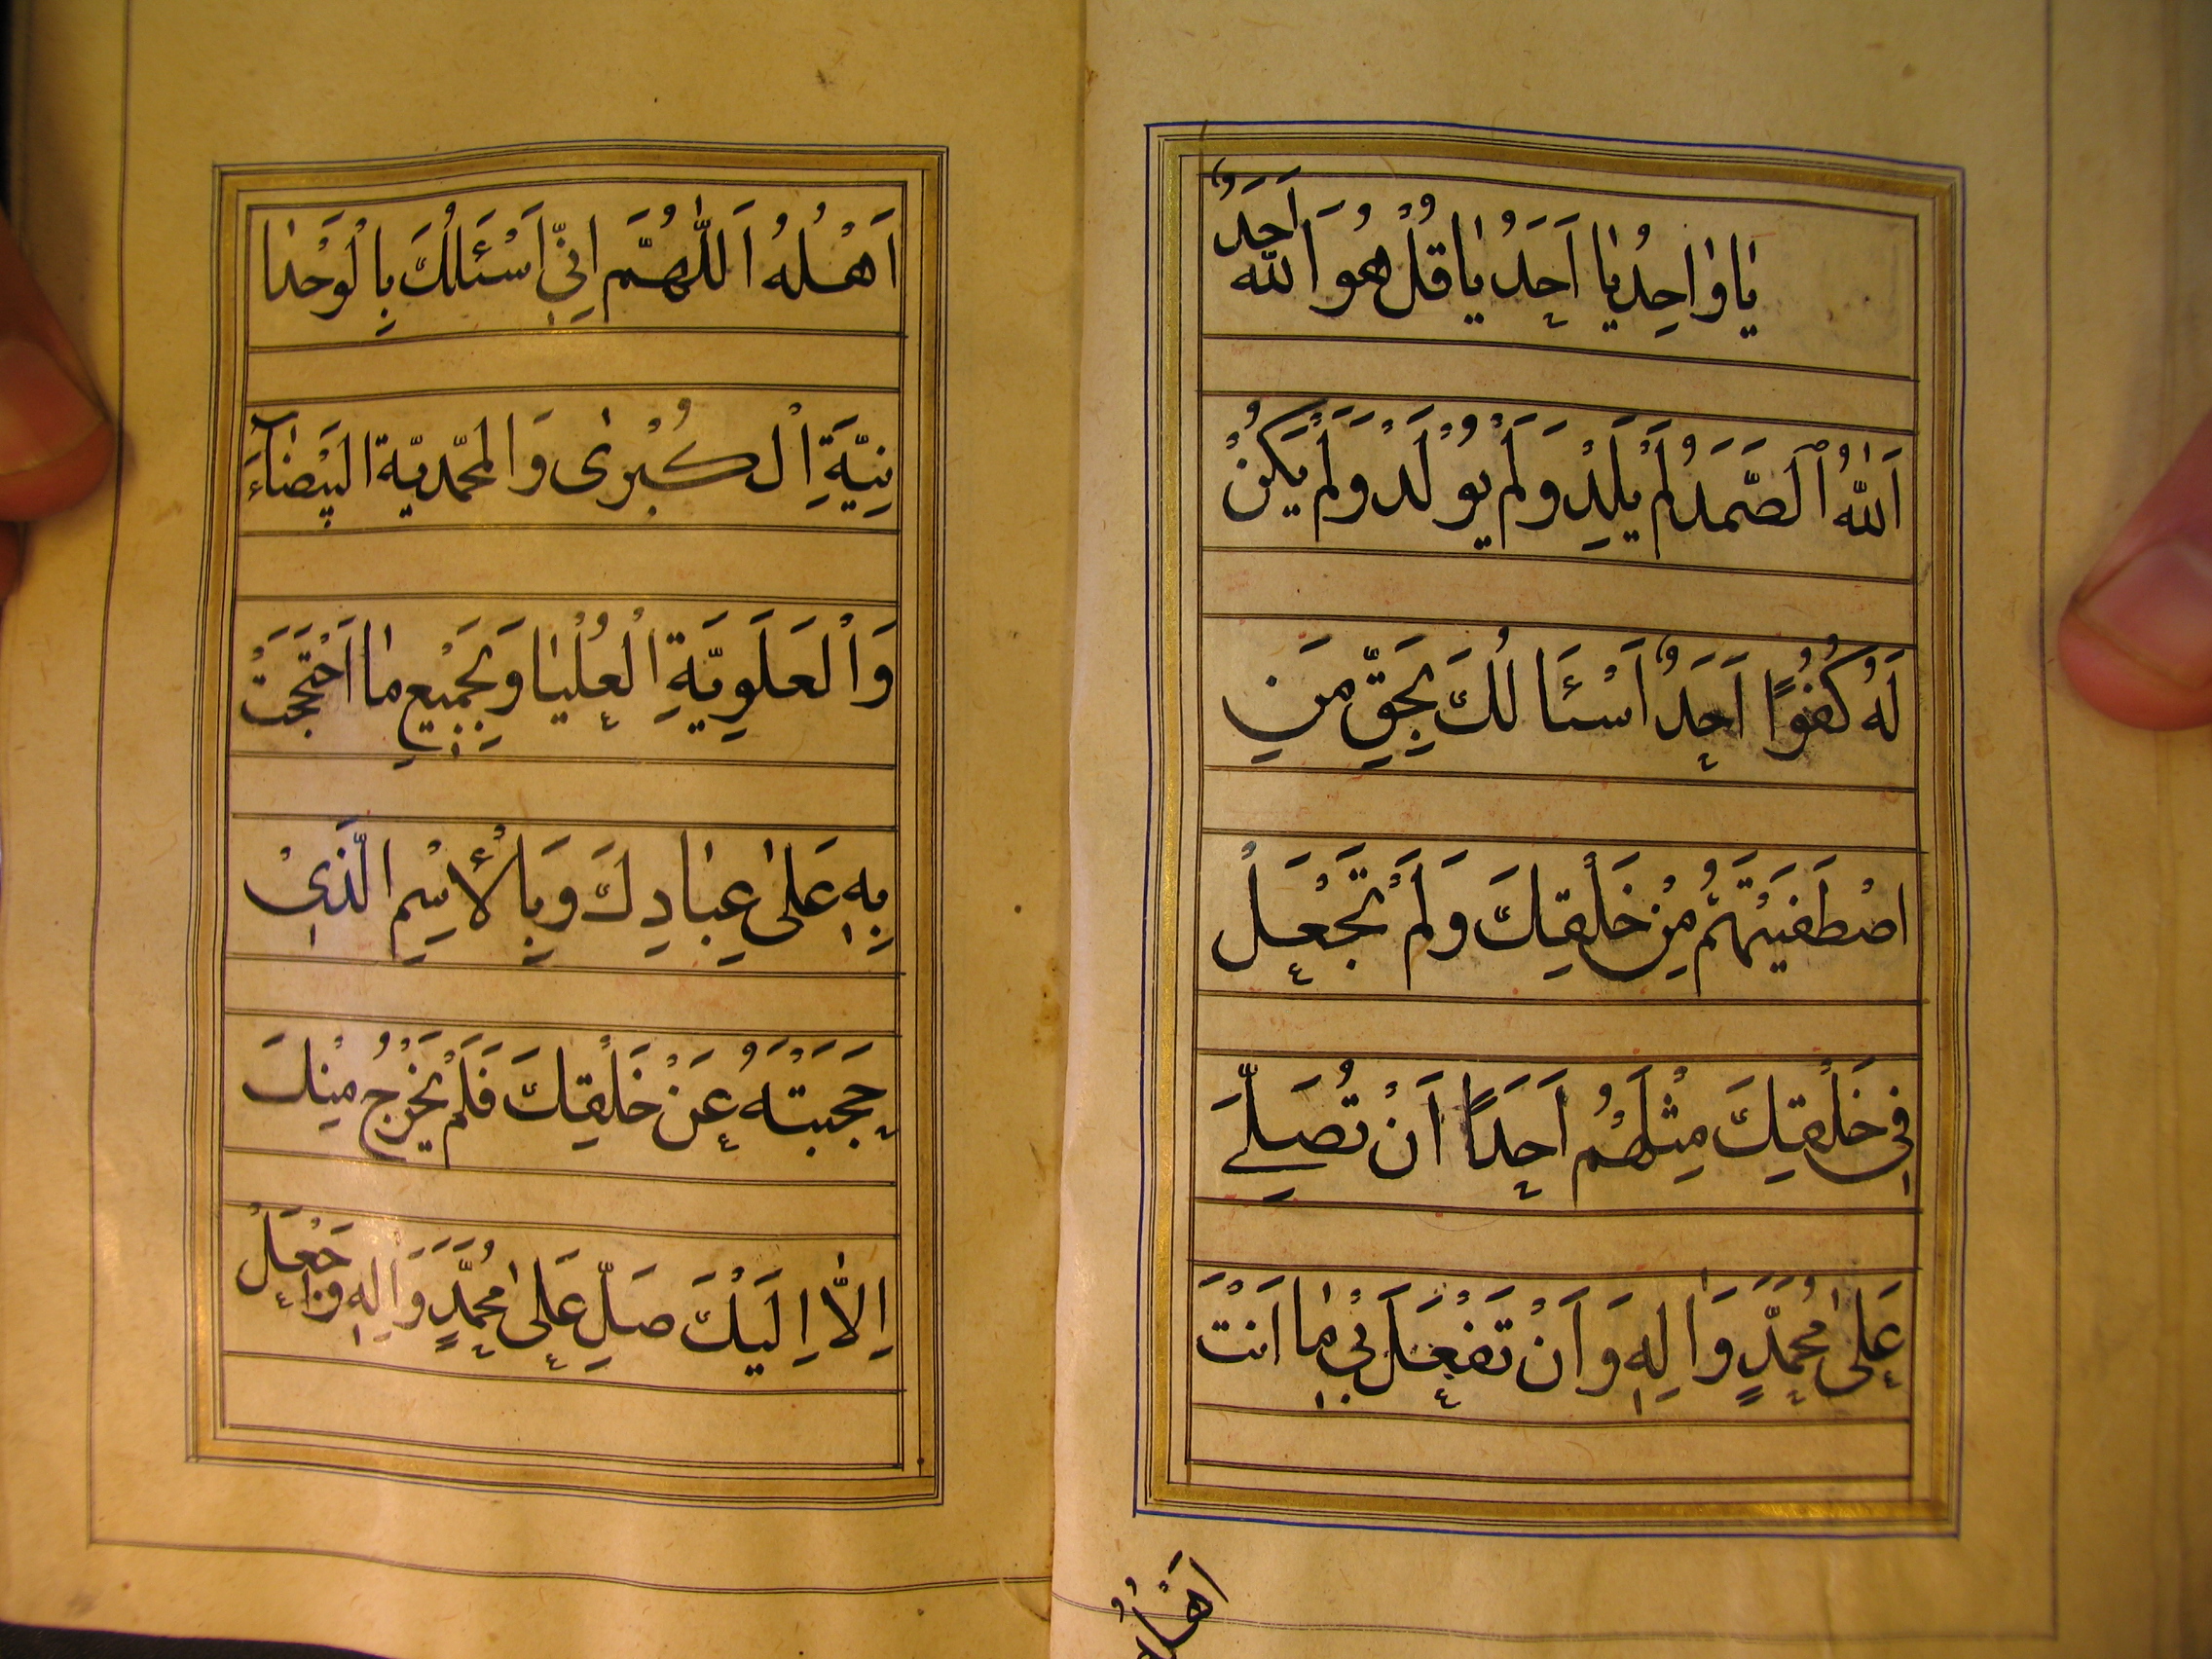 يٰا وٰاحِدُ يٰا اَحَدُ يٰا قُلْ هُوَ اللّٰه اَحَدٌ
اَللّٰهُ الْصَّمَدُ لَمْ يَلِدْ وَلَمْ يُوْلَدْ وَلَمْ يَكُنْ
لَهُ كُفُوًا اَحَدٌ اَسْئَالُكَ بِحَقِّ مَنِ
اصْطَفَيْتَهُمْ مِنْ خَلْقِكَ وَلَمْ تَجْعَلْ
فِي خَلْقِكَ مِثْلَهُمْ اَحَدًا اَنْ تُصَلِّيَ
عَلىٰ مُحَمَّدٍ وَاٰلِهِ وَاَنْ تَفْعَلَ بِيْ مٰا اَنْتَ
اَهْلُهُ
اَهْلُهُ اَللّٰهُمَّ اِنِّي اَسْئَلُكَ بِالْوَحْدٰا
نِيَّةِ الْكُبْرىٰ وَالمحمّديّة البَيْضٰآءِ
وَالْعَلَوِيَّةِ الْعُلْيٰا وَبِجَمِيْعِ مٰا احْتَجَجْتَ
بِهِ عَلىٰ عِبٰادِكَ وَبِالْأِسْمِ الَّذِيْ
حَجَبْتَهُ عَنْ خَلْقِكَ فَلَمْ يَخْرُجْ مِنْكَ
اِلاّٰ اِلَيْكَ صَلِّ عَلىٰ مُحَمَّدٍ وَاٰلِهِ وَاجْعَلْ